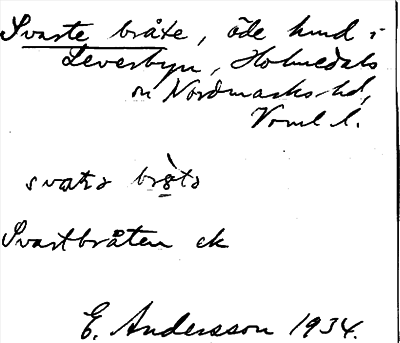 Svarte bråte, öde hmd i
Leverbyn, Holmedals
sn Nordmarks hd,
Vrml l.
svatə bròtə
Svartbråten ek
E. Andersson 1934.